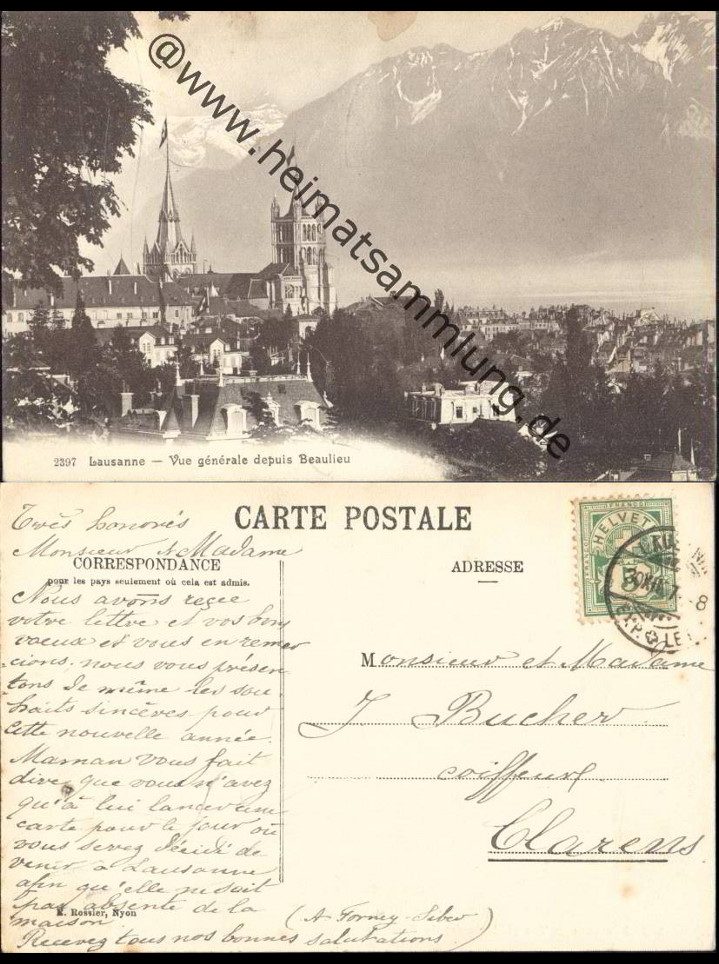 @www.heimatsammlung.de
2397 Lausanne — Vue générale depuis Beaulieu
CARTE POSTALE
Très honorés
Monsieur & Madame
CORRESPONDANCE
pour les pays seulement où cela est admis.
ADRESSE
HELVETIA
5
LE
Nous avons reçu
votre lettre et vos bons
voeux et vous en remer
-cions, nous vous présen
tons de même les sou
haits sincères pour
cette nouvelle année.
Maman vous fait
dire que vous n'avez
qu'à lui lancer une
carte pour le jour où
vous serez décidé de
venir à Lausanne
afin qu'elle ne soit
pas absente de la
maison.
Recevez tous nos bonnes salutations
(A Forney-)
E. Rossier, Nyon
Monsieur et Madame
J Bucher
coiffeur
Clarens